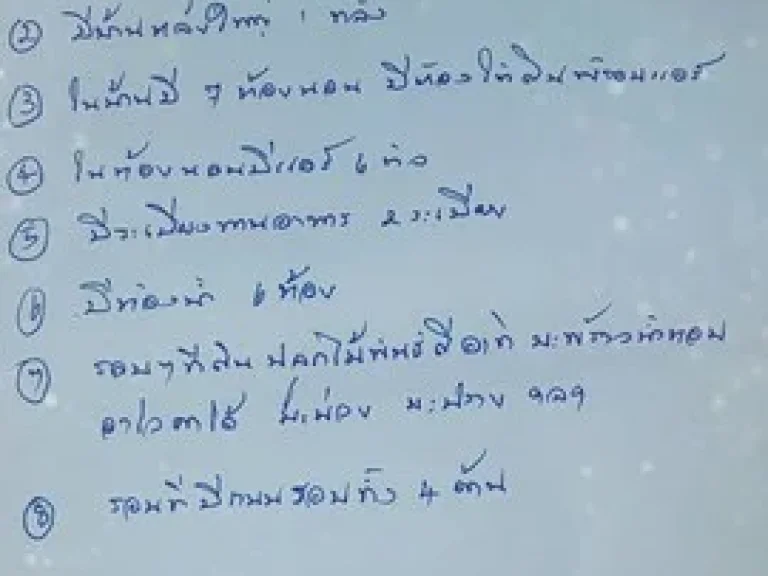 ② มีบ้านหลังใหญ่ 1 หลัง
③ ในบ้านมี 7 ห้องนอน มีห้องให้ พร้อมแอร์
④ ในห้องนอนมีแอร์ 6 ตัว
⑤ มีระเบียงทานอาหาร 2 ระเบียง
⑥ มีห้องน้ำ 6 ห้อง
⑦ รอบๆที่ดิน ปลูกไม้พันธ์ดี อาทิ มะพร้าวน้ำหอม
อาโวคาโด้ มะม่วง มะปราง ฯลฯ
⑧ รอบที่มีถนนรอบทั้ง 4 ด้าน